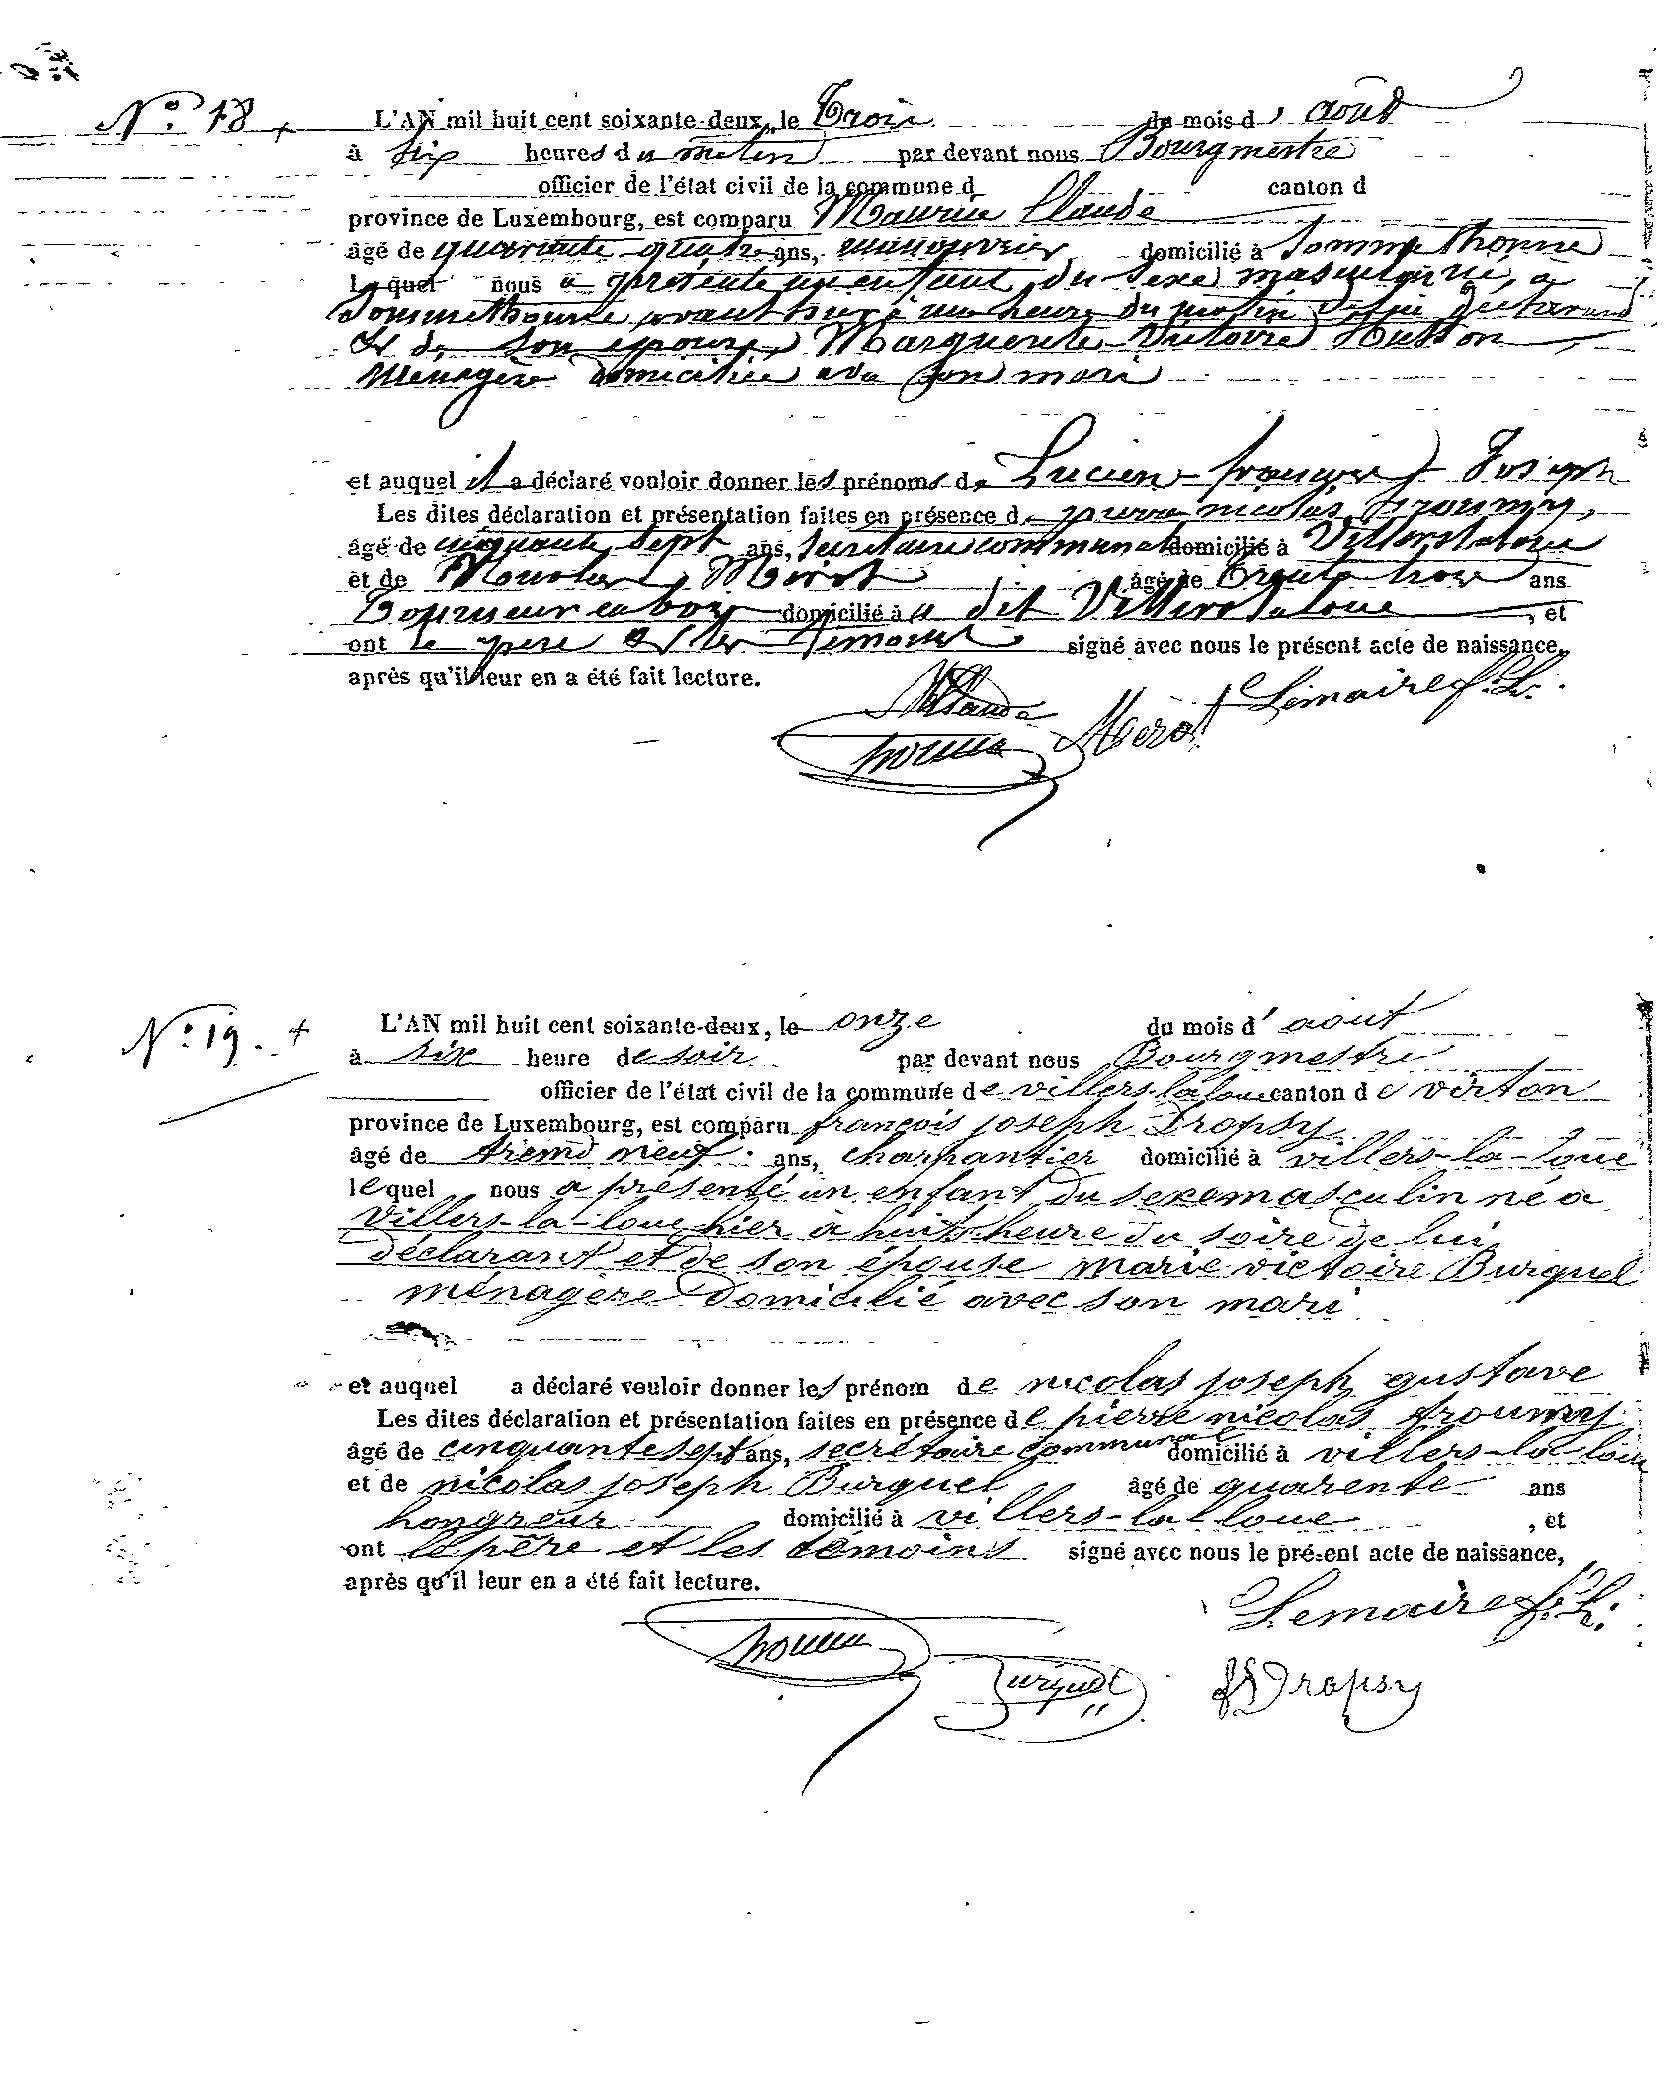 N° 18
L'AN mil huit cent soixante-deux, le Trois du mois d' aout
à six heures du matin par devant nous Bourgmestre
officier de l'état civil de la commune d canton d
province de Luxembourg, est comparu Maurice Claude
âgé de quarante quatre ans, manouvrier domicilié à Sommethonne
lequel nous a présenté un enfant du sexe masculin né, a
Sommethonne avant hier à une heure du matin de lui déclarant
et de son épouse Marguerite Victoire Husson
Menagère domiciliée avec son mari
et auquel il a déclaré vouloir donner les prénoms de Lucien françois Joseph
Les dites déclaration et présentation faites en présence de pierre nicolas Froumy,
âgé de cinquante sept ans, secrétaire communal domicilié à Villerslaloue
et de Mérot âgé de Trente trois ans
Tourneur en bois domicilié à u dit Villerslaloue , et
ont le père et les témoins signé avec nous le présent acte de naissance,
après qu'il leur en a été fait lecture.
MClaude Mérot Lemaire f. L.
N° 19.
L'AN mil huit cent soixante-deux, le onze du mois d' aout
à six heure de soir par devant nous Bourgmestre
officier de l'état civil de la commune de villers-la-loue canton de virton
province de Luxembourg, est comparu françois joseph Dropsy
âgé de neuf ans, charpantier domicilié à villers-la-loue
lequel nous a présenté un enfant du sexe masculin né a
Villers-la-loue hier à huit heure du soire de lui
déclarant et de son épouse marie victoire Burquel
ménagère domicilié avec son mari
et auquel a déclaré vouloir donner les prénom de nicolas joseph gustave
Les dites déclaration et présentation faites en présence de pierre nicolas froumy
âgé de cinquante sept ans, secrétaire communal domicilié à villers-la-loue
et de nicolas joseph Burquel âgé de quarente ans
hongreur domicilié à villers-la-loue , et
ont le père et les témoins signé avec nous le présent acte de naissance,
après qu'il leur en a été fait lecture.
Lemaire f. L.
Burquel Dropsy